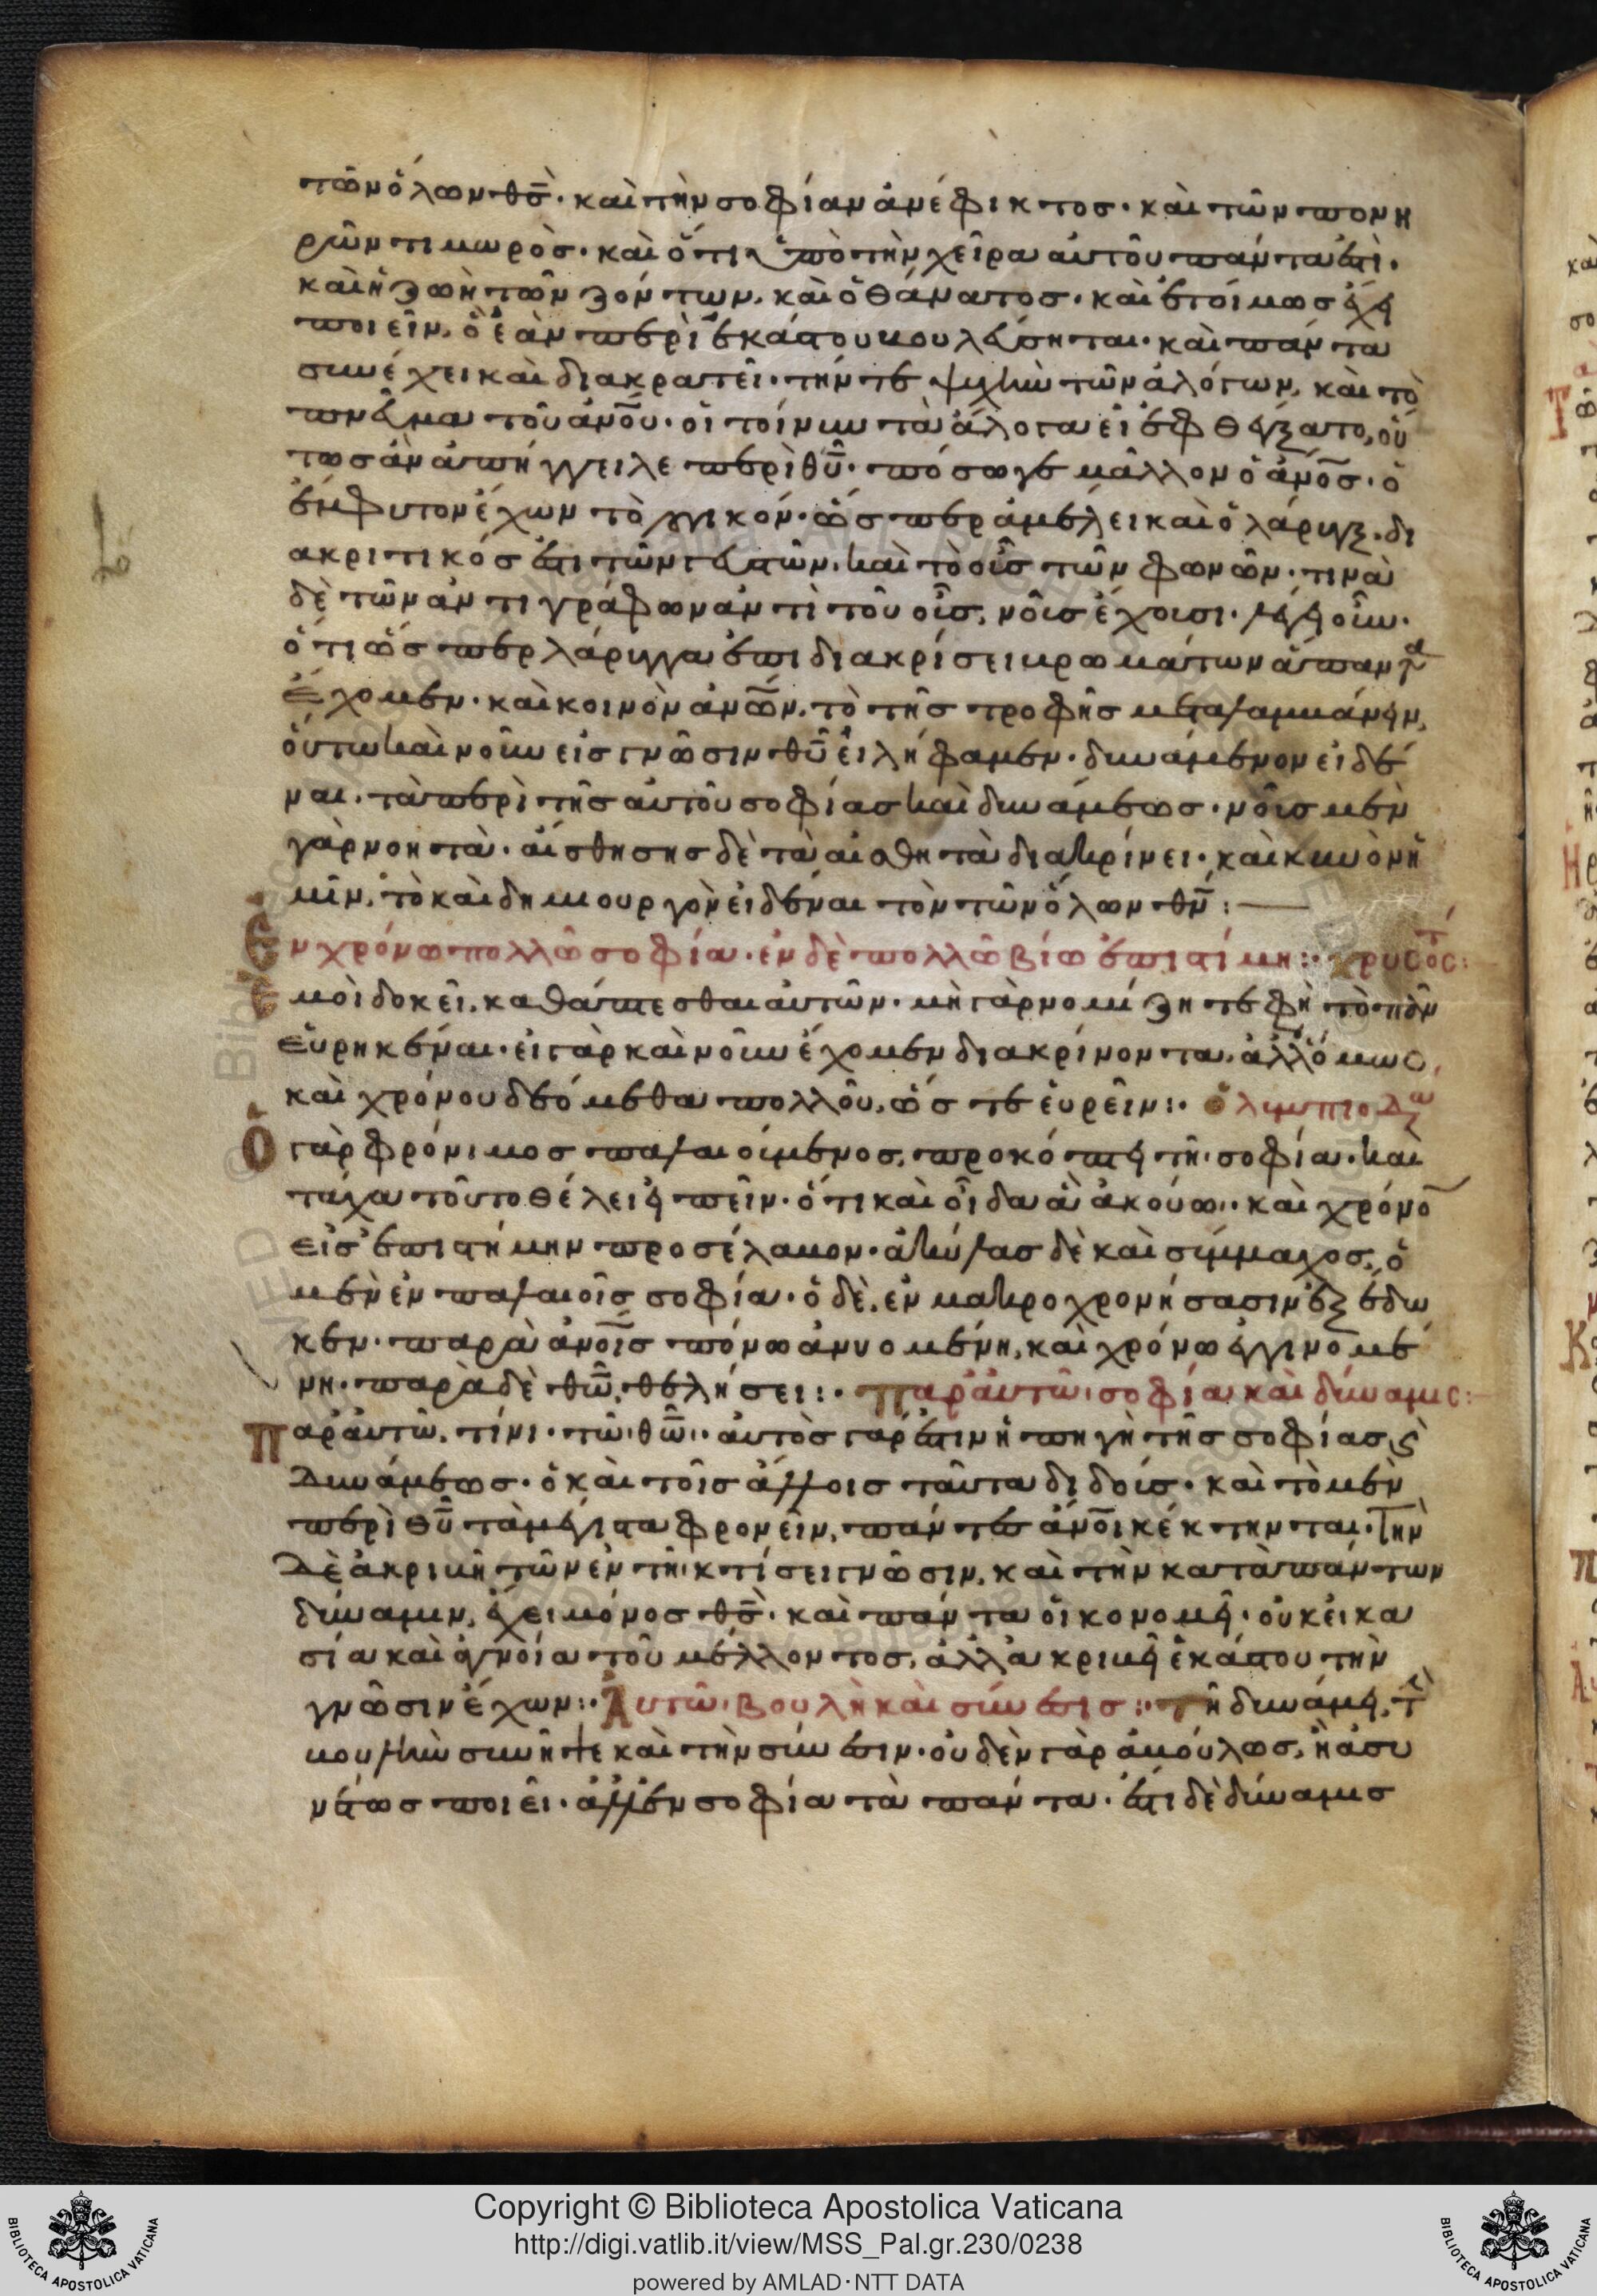 τῶν ὅλων θς̅· καὶ τὴν σοφίαν ἀνέφικτος· καὶ τῶν πονη
ρῶν τιμωρὸς· καὶ ὅτι ὑπὸ τὴν χεῖρα αὐτοῦ πάντα ἐστὶ·
καὶ ἡ ζωὴ τῶν ζόντων, καὶ ὁ θάνατος· καὶ ἑτοίμως ἔχει
ποιεῖν, ὃ ἐὰν περὶ ἑκάστου βουλεύσηται· καὶ πάντα
συνέχει καὶ διακρατεῖ· τήν τε ψυχὴν τῶν ἀλόγων, καὶ τὸ
πνεῦμα τοῦ ἀν̅ο̅υ· οἱ τοίνυν τὰ ἄλογα εἰ ἐφθέγξατο, οὕ
τως ἂν ἀπήγγειλε περὶ θυ̅· πόσω γε μᾶλλον ὁ ἄν̅ο̅ς· ὁ
ἔμφυτον ἔχων τὸ λογικόν· ὥσπερ ἀμέλει καὶ ὁ λάρυγξ· δι
ακριτικός ἐστι τῶν γευστῶν, καὶ τὸ οὖς τῶν φωνῶν· τινὰ
δὲ τῶν ἀντιγράφων ἀντὶ τοῦ οὖς, νοῦς ἔχουσι· λέγει οὖν·
ὅτι ὥσπερ λάρυγγα ἐπι διακρίσει βρωμάτων ἅπαντα
ἔχομεν· καὶ κοινὸν ἀν̅ω̅ν, τὸ τῆς τροφῆς μεταλαμβάνειν,
οὕτω καὶ νοῦν εἰς γνῶσιν θυ̅ εἰλήφαμεν· δυνάμενον εἰδέ
ναι· τὰ περὶ τῆς αὐτοῦ σοφίας καὶ δυνάμεως· νοῦς μὲν
γὰρ νοητὰ· αἴσθησης δὲ τὰ αἰσθητὰ διακρίνει· καὶ κινὸν ἡ
μῖν, τὸ καὶ δημιουργὸν εἰδέναι τὸν τῶν ὅλων θν̅:
Ἐν χρόνω πολλῶ σοφία· ἐν δὲ πολλῶ βίω ἐπιστίμη:· χρυσοστ:
Ἐμοὶ δοκεῖ, καθάπτεσθαι αὐτῶν· μὴ γὰρ νομίζητε φὴ τὸ πᾶν
εὑρηκέναι· εἰ γὰρ καὶ νοῦν ἔχομεν διακρίνοντα, ἀλλ' ὅμως,
καὶ χρόνου δεόμεθα πολλοῦ, ὥστε εὑρεῖν:· ὀλυμπιοδω
Ὁ γὰρ φρόνιμος παλαιούμενος, προκόπτει τῆ σοφία· καὶ
τάχα τοῦτο θέλει εἰπεῖν· ὅτι καὶ οἶδα ἃ ἀκούω· καὶ χρόνο
εἰς ἐπιστήμην προσέλαβον· ἀκύλας δὲ καὶ σύμμαχος, ὁ
μὲν ἐν παλαιοῖς σοφία· ὁ δὲ, ἐν μακροχρονήσασιν ἐξέδω
κεν· παρὰ ἀν̅ο̅ις πόνω ἀνυομένη, καὶ χρόνω ἐγγινομέ
νη· παρὰ δὲ θω̅, θελήσει:· Παρ' αὐτῶ σοφία καὶ δύναμις:
Παρ' αὐτῶ, τίνι· τῶ θω̅· αὐτὸς γάρ ἐστιν ἡ πηγὴ τῆς σοφίας κ̀
δυνάμεως· ὁ καὶ τοῖς ἄλλοις ταῦτα διδούς· καὶ τὸ μὲν
περὶ θυ̅ τὰ μέγιστα φρονεῖν, πάντες ἄν̅ο̅ι κέκτηνται· τὴν
δὲ ἀκριβῆ τῶν ἐν τῆ κτίσει γνῶσιν, καὶ τὴν κατὰ πάντων
δύναμιν, ἔχει μόνος θς̅· καὶ πάντα οἰκονομεῖ· οὐκ εἰκα
σία καὶ ἀγνοία τοῦ μέλλοντος, ἀλλ' ἀκριβῆ ἑκάστου τὴν
γνῶσιν ἔχων:· Αὐτῶ βουλὴ καὶ σύνεσις:· τῆ δυνάμει, τ
βουλὴν συνῆπτε καὶ τὴν σύνεσιν· οὐδὲν γὰρ ἀβούλως, ἢ ἀσυ
νέτως ποιεῖ· ἀλλ' ἐν σοφία τὰ πάντα· ἔτι δὲ δύναμις
Copyright © Biblioteca Apostolica Vaticana
http://digi.vatlib.it/view/MSS_Pal.gr.230/0238
powered by AMLAD·NTT DATA
BIBLIOTECA APOSTOLICA VATICANA
BIBLIOTECA APOSTOLICA VATICANA